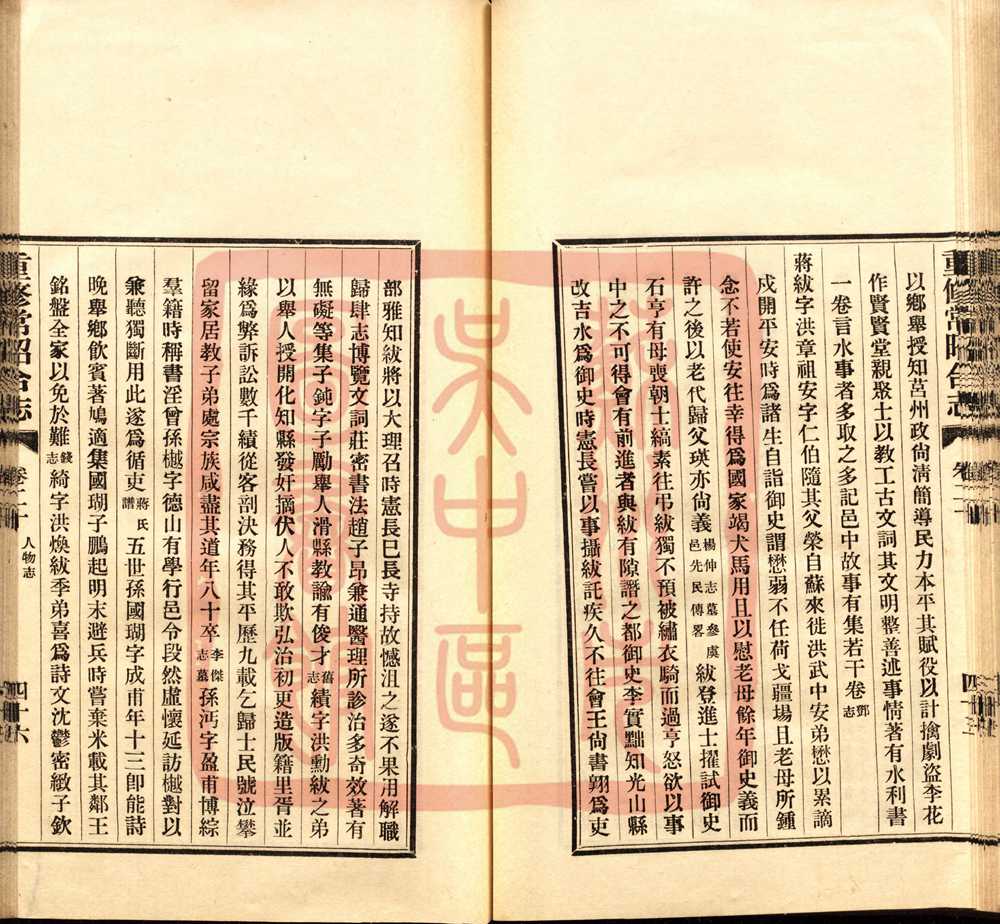 以鄉舉授知莒州政尙清簡導民力本平其賦役以計擒劇盜李花
作賢賢堂親聚士以敎工古文詞其文明整善述事情著有水利書
一卷言水事者多取之多記邑中故事有集若干卷鄧志
蔣紱字洪章祖安字仁伯隨其父榮自蘇來徙洪武中安弟懋以累謫
戍開平安時爲諸生自詣御史謂懋弱不任荷戈疆場且老母所鍾
念不若使安往幸得爲國家竭犬馬用且以慰老母餘年御史義而
許之後以老代歸父瑛亦尙義楊伸志墓參虞邑先民傳畧紱登進士擢試御史
石亨有母喪朝士縞素往弔紱獨不預被繡衣騎而過亨怒欲以事
中之不可得會有前進者與紱有隙譖之都御史李實黜知光山縣
改吉水爲御史時憲長嘗以事攝紱託疾久不往會王尙書翺爲吏
重修常昭合志
部雅知紱將以大理召時憲長巳長寺持故憾沮之遂不果用解職
歸肆志博覽文詞莊密書法趙子昂兼通醫理所診治多奇效著有
無礙等集子鈍字子勵舉人滑縣敎諭有俊才舊志績字洪勳紱之弟
以舉人授開化知縣發奸摘伏人不敢欺弘治初更造版籍里胥並
緣爲弊訴訟數千績從客剖決務得其平歷九載乞歸士民號泣攀
留家居敎子弟處宗族咸盡其道年八十卒李傑志墓孫沔字盈甫博綜
羣籍時稱書淫曾孫樾字德山有學行邑令段然虛懷延訪樾對以
兼聽獨斷用此遂爲循吏蔣氏譜五世孫國瑚字成甫年十三卽能詩
晚舉鄉飲賓著鳩適集國瑚子鵬起明末避兵時嘗棄米載其鄰王
銘盤全家以免於難錢志綺字洪煥紱季弟喜爲詩文沈鬱密緻子欽
重修常昭合志
卷二十
人物志
四十六